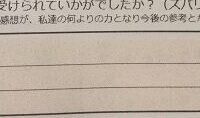 受けられていかがでしたか?(ズバリ
感想が、私達の何よりの力となり今後の参考とか